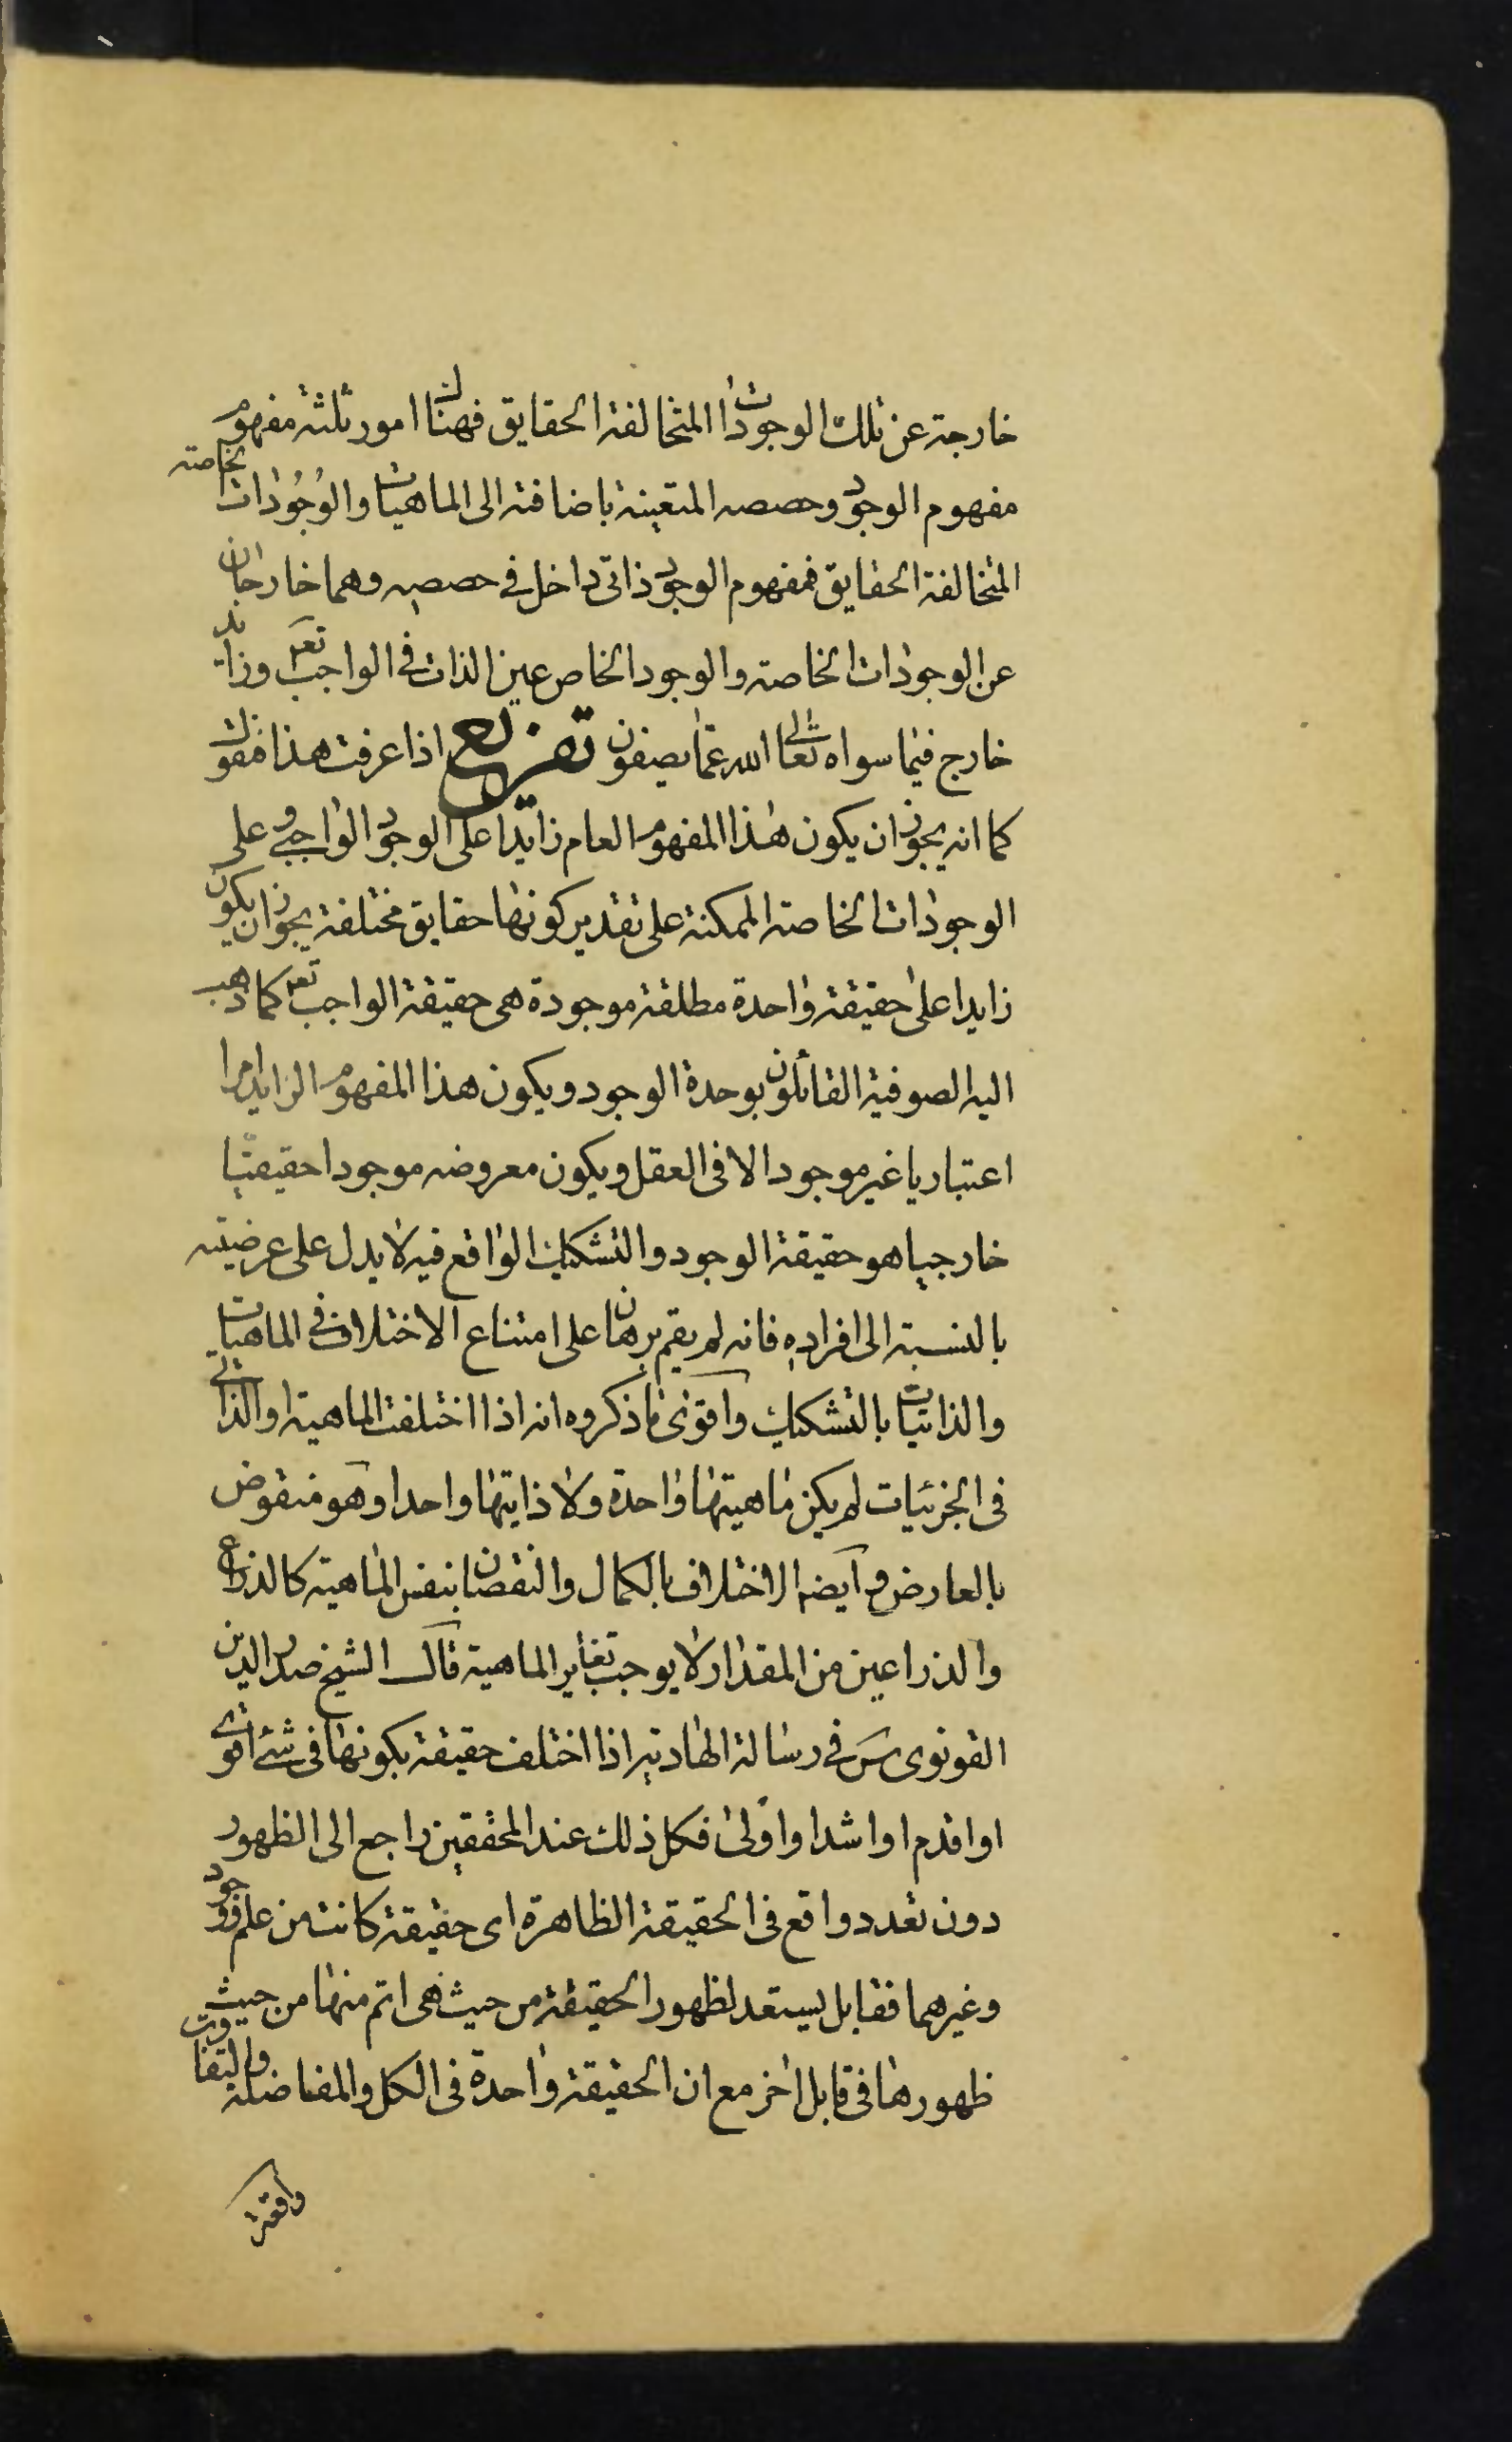 خارجة عن تلك الوجودات المتخالفة الحقايق فهناك امور ثلثة مفهوم
مفهوم الوجود وحصصه المتعينة باضافته الى الماهيات والوجودات الخاصة
المتخالفة الحقايق فمفهوم الوجود ذاتى داخل فى حصصه وهما خارجان
عن الوجودات الخاصة والوجود الخاص عين الذات فى الواجب تعم وزائد
خارج فيما سواه تعالى الله عما يصفون تفريع اذا عرفت هذا فنقول
كما انه يجوز ان يكون هذا المفهوم العام زايدا على الوجود الواجبى وعلى
الوجودات الخاصة الممكنة على تقدير كونها حقايق مختلفة يجوز ان يكون
زايدا على حقيقة واحدة مطلقة موجودة هى حقيقة الواجب تعم كما ذهب
اليه الصوفية القائلون بوحدة الوجود ويكون هذا المفهوم الزايد امرا
اعتباريا غير موجود الا فى العقل ويكون معروضه موجودا حقيقيا
خارجيا هو حقيقة الوجود والتشكيك الواقع فيه لا يدل على عرضيته
بالنسبة الى افراده فانه لم يقم برهان على امتناع الاختلاف فى الماهيات
والذاتيات بالتشكيك واقوى ما ذكروه انه اذا اختلفت الماهية او الذاتى
فى الجزئيات لم يكن ماهيتها واحدة ولا ذايتها واحدا وهو منقوض
بالعارض و ايضا الاختلاف بالكمال والنقصان بنفس الماهية كالذراع
والذراعين من المقدار لا يوجب تغاير الماهية قال الشيخ صدر الدين
القونوى س فى رسالة الهادية اذا اختلف حقيقة بكونها فى شئ اقوى
او اقدم او اشد او اولى فكل ذلك عند المحققين راجع الى الظهور
دون تعدد واقع فى الحقيقة الظاهرة اى حقيقة كانت من علم ووجود
وغيرهما فقابل يستعد لظهور الحقيقة من حيث هى اتم منها من حيث
ظهورها فى قابل اخر مع ان الحقيقة واحدة فى الكل والمفاضلة والتفاوت
واقع